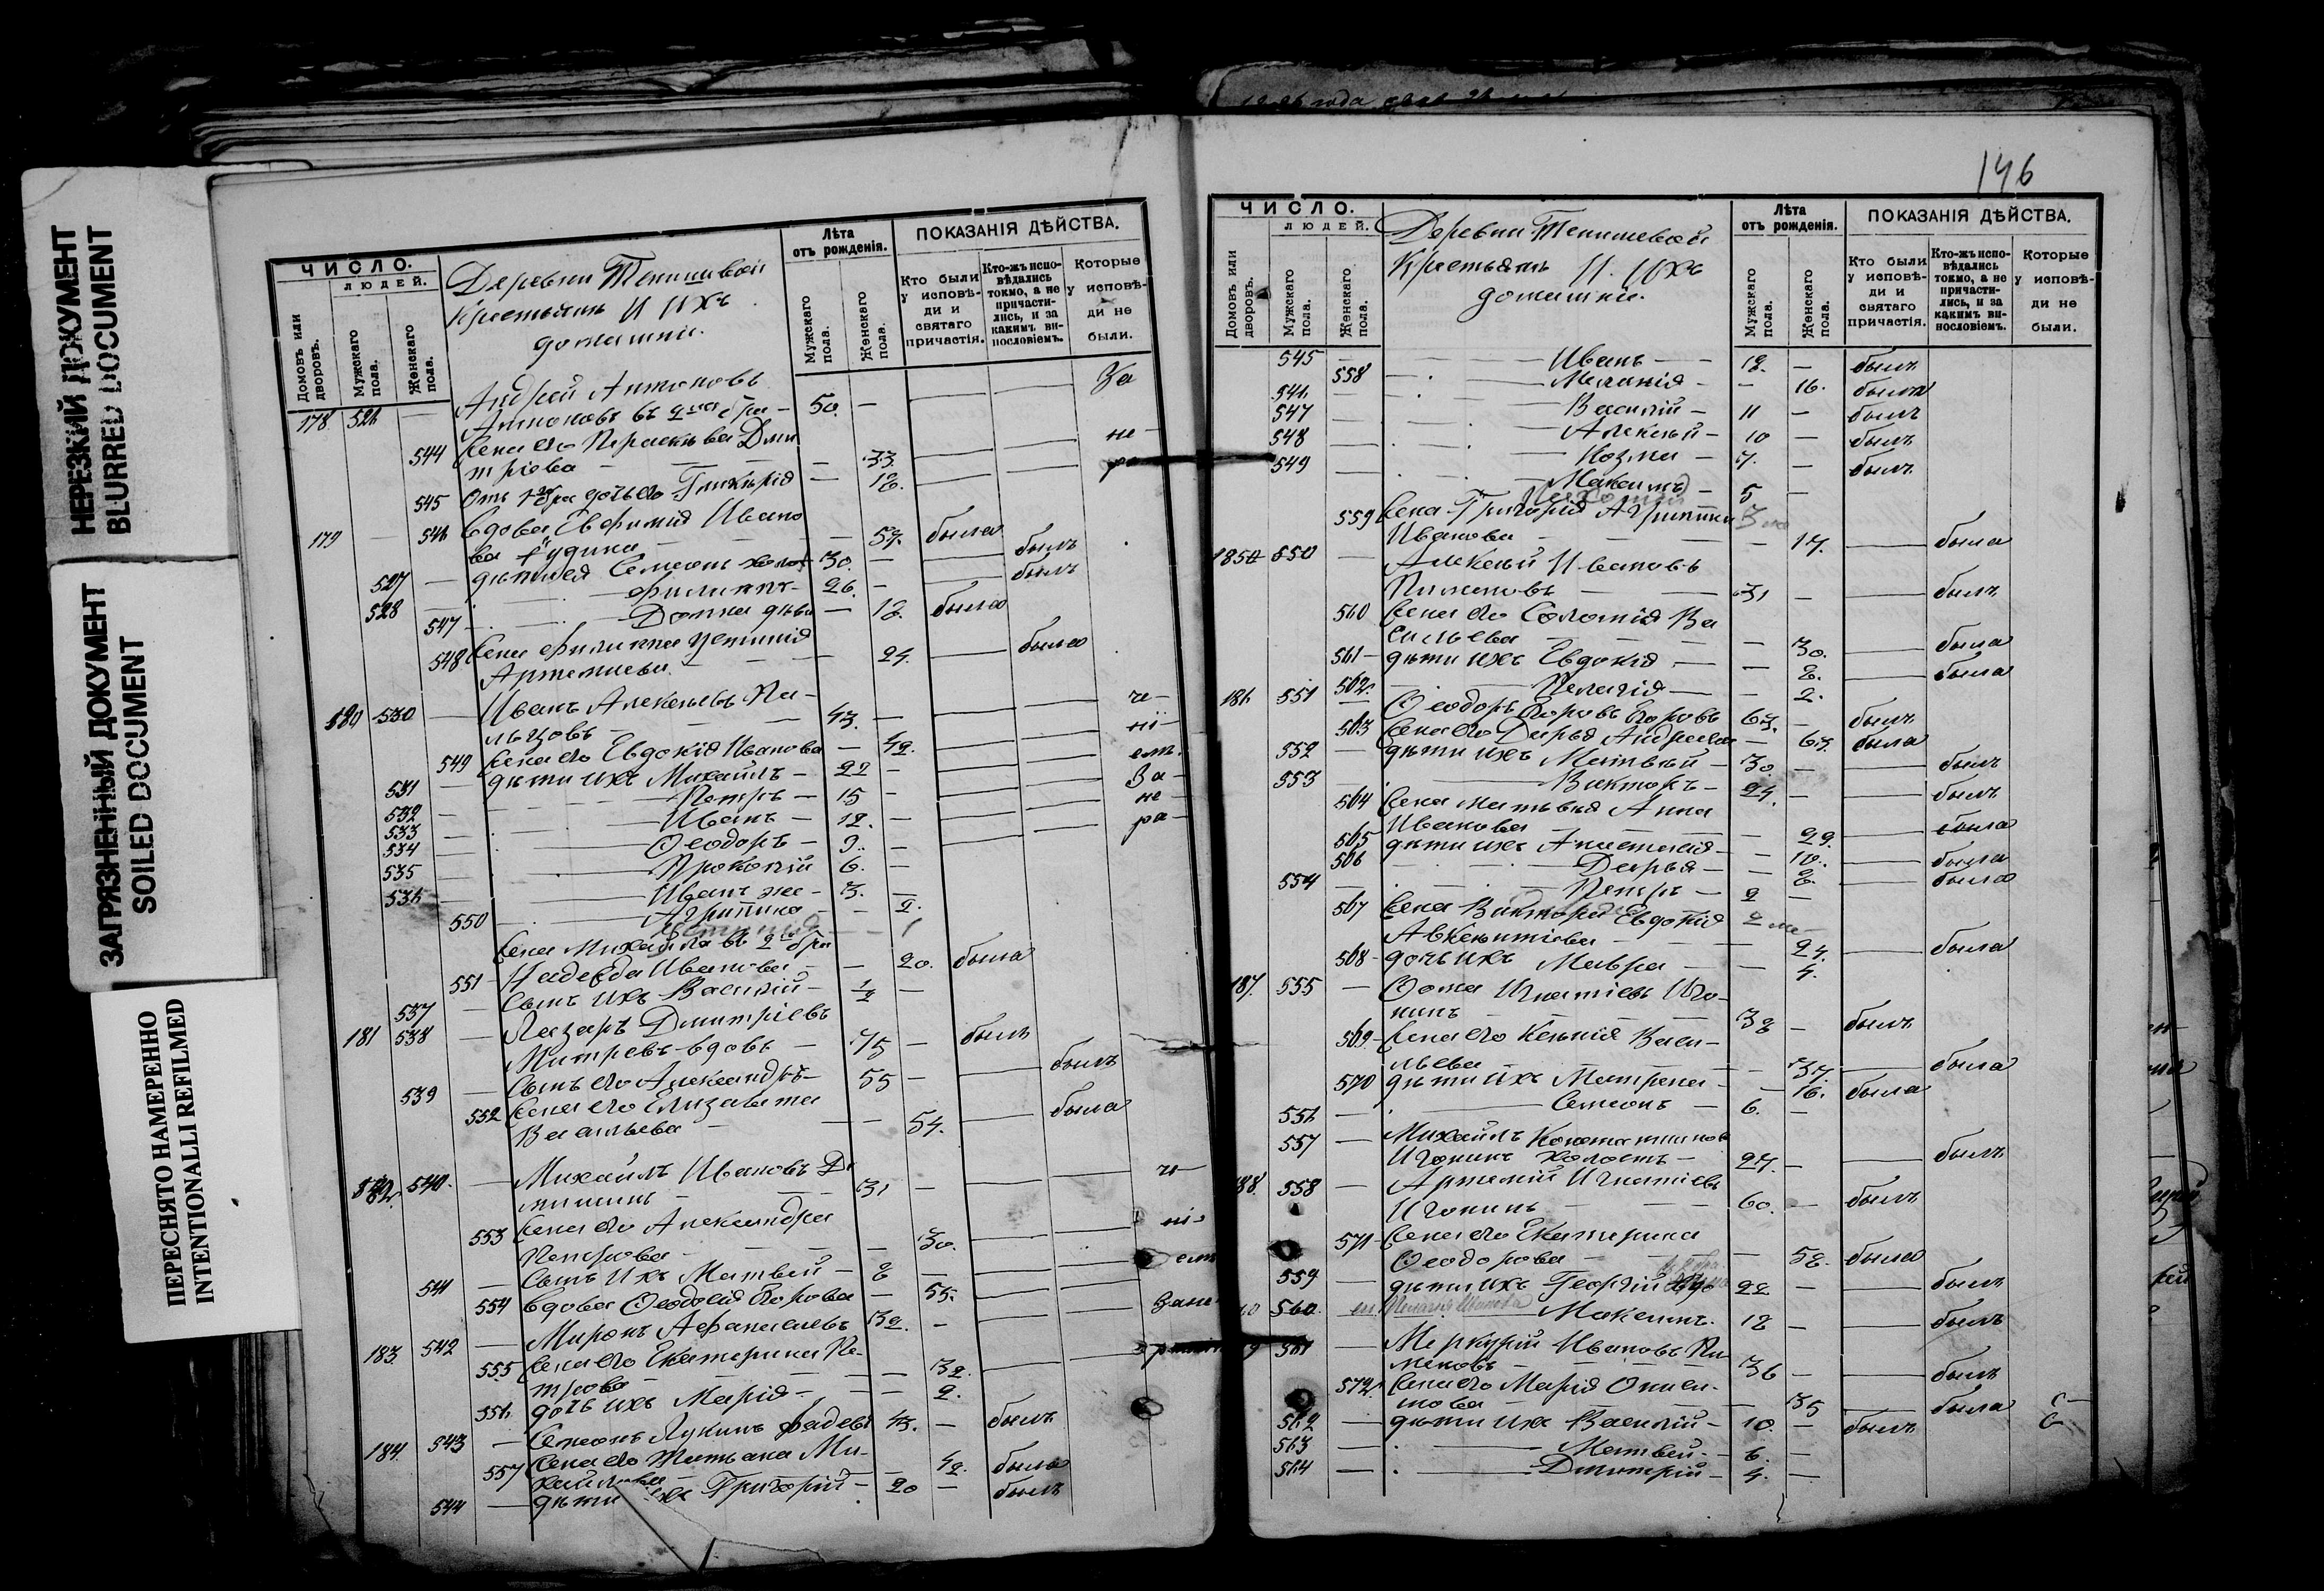 НЕРЕЗКИЙ ДОКУМЕНТ
BLURRED DOCUMENT
ЗАГРЯЗНЕННЫЙ ДОКУМЕНТ
SOILED DOCUMENT
ПЕРЕСНЯТО НАМЕРЕННО
INTENTIONALLI REFILMED
ЧИСЛО.
ЛЮДЕЙ.
Домовъ или дворовъ.
Мужскаго пола.
Женскаго пола.
Деревни Тенишевой
Крестьянъ И ихъ
домашнiе.
Лѣта
отъ рожденія.
Мужскаго пола.
Женскаго пола.
ПОКАЗАНІЯ ДѢЙСТВА.
Кто были у исповѣди и святаго причастія.
Кто-жъ исповѣдались токмо, а не причастились, и за какимъ винословіемъ.
Которые у исповѣди не были.
178 526 — Андрей Антоновъ
Антоновъ въ 2мъ бра- 50. — За
544 Жена его Параскева Дми
тріева — 33. не-
545 Отъ 1го бра дочь его Гликерія — 18. ра
179 — 546 Вдова Евфимія Ивано
ва — 57. была
527 — дѣти ея Симеонъ холос 30. — былъ
528 — Филиппъ- 26. — былъ
547 Домна дѣви — 18. была
548 Жена Филиппа
Артемьева — 24. была
180 530 — Иванъ Алексѣевъ Па-
льцовъ — 43. — че-
549 Жена его Евдокія Иванова — 42. ні-
531 — дѣти ихъ Михаилъ — 22 — емъ.
532 — Петръ — 15 — За-
533 — Иванъ — 12. — не-
534 — Ѳеодоръ — 9. — ра-
535 — Прокопій 6. —
536 — Иванъ же — 3. —
550 Агрипина — 2.
Жена Михаила въ 2мъ бра
551 Надежда Иванова — 20. была
537 — Сынъ ихъ Василій — 1/2 —
181 538 — Лазарь Димитріевъ
Митревъ вдовъ — 75 — былъ
539 — Сынъ его Александръ- 55 — былъ
552 Жена его Елизавета
Васильева — 54. была
182. 540. — Михаилъ Ивановъ
31 — че-
553 Жена его Александра
Петрова — 30. ні-
541 — Сынъ ихъ Матвей — 8 — емъ
554 Вдова Ѳеодосія Егорова — 55.
183. 542 — Миронъ Афанасьевъ 32. —
555 Жена его Екатерина Пе-
трова — 32.
556 дочь ихъ Марія — 2.
184. 543 — Симеонъ Лукинъ Фадевъ 43. — былъ
557 Жена его Татьяна Ми-
хайлова — 42. была
544 — дѣти ихъ Григорій — 20 — былъ
146
ЧИСЛО.
ЛЮДЕЙ.
Домовъ или дворовъ.
Мужскаго пола.
Женскаго пола.
Деревни Тенишевой
Крестьянъ И. ихъ
домашнiе.
Лѣта
отъ рожденія.
Мужскаго пола.
Женскаго пола.
ПОКАЗАНІЯ ДѢЙСТВА.
Кто были у исповѣди и святаго причастія.
Кто-жъ исповѣдались токмо, а не причастились, и за какимъ винословіемъ.
Которые у исповѣди не были.
545 — Иванъ — 18. — былъ
558 — Меланія — 16. была
546 — Василій — 11 — былъ
547 — Алексѣй — 10 — былъ
548 — Козма — 7. — былъ
549 — Максимъ — 5 —
559 Жена Григорія Агрипина
Иванова — 17. была
185 550 — Алексѣй Ивановъ
31 — былъ
560 Жена его Соломія Ва
сильева — 30. была
561 дѣти ихъ Евдокія — 8. была
562 — Пелагія — 2.
186 551 — Ѳеодоръ Егоровъ Егоровъ 63. — былъ
563 Жена его Дарья Андреева — 63. была
552 — дѣти ихъ Матвѣй — 30. — былъ
553 — Викторъ — 24. — былъ
564 Жена Матвѣя Анна
Иванова — 29. была
565 дѣти ихъ Анастасія — 10. была
566 Дарья — 8. была
554 — Петръ — 2 —
567 Жена Виктора Евдокія
Авксентіева — 24. была
568 дочь ихъ Мавра — 4.
187. 555 — Ѳома Игнатіевъ Иго-
нинъ — 38 — былъ
569 Жена его Ксенія Васи-
льева — 37. была
570 дѣти ихъ Матрона — 16. была
556 — Симеонъ — 6. —
557 — Михаилъ Константинов
Игонинъ холостъ — 27. — былъ
188 558 — Артемій Игнатіевъ
Игонинъ — 60. — былъ
571 Жена его Екатерина
Ѳеодорова — 58. была
559 — дѣти ихъ Георгій 22 — былъ
560. Максимъ. 18 — былъ
561 — Меркурій Ивановъ
36 — былъ
572 Жена его Марія
35 была
562 — дѣти ихъ Василій — 10. — былъ
563 — Матвей — 6. —
564 — Димитрій — 4. —